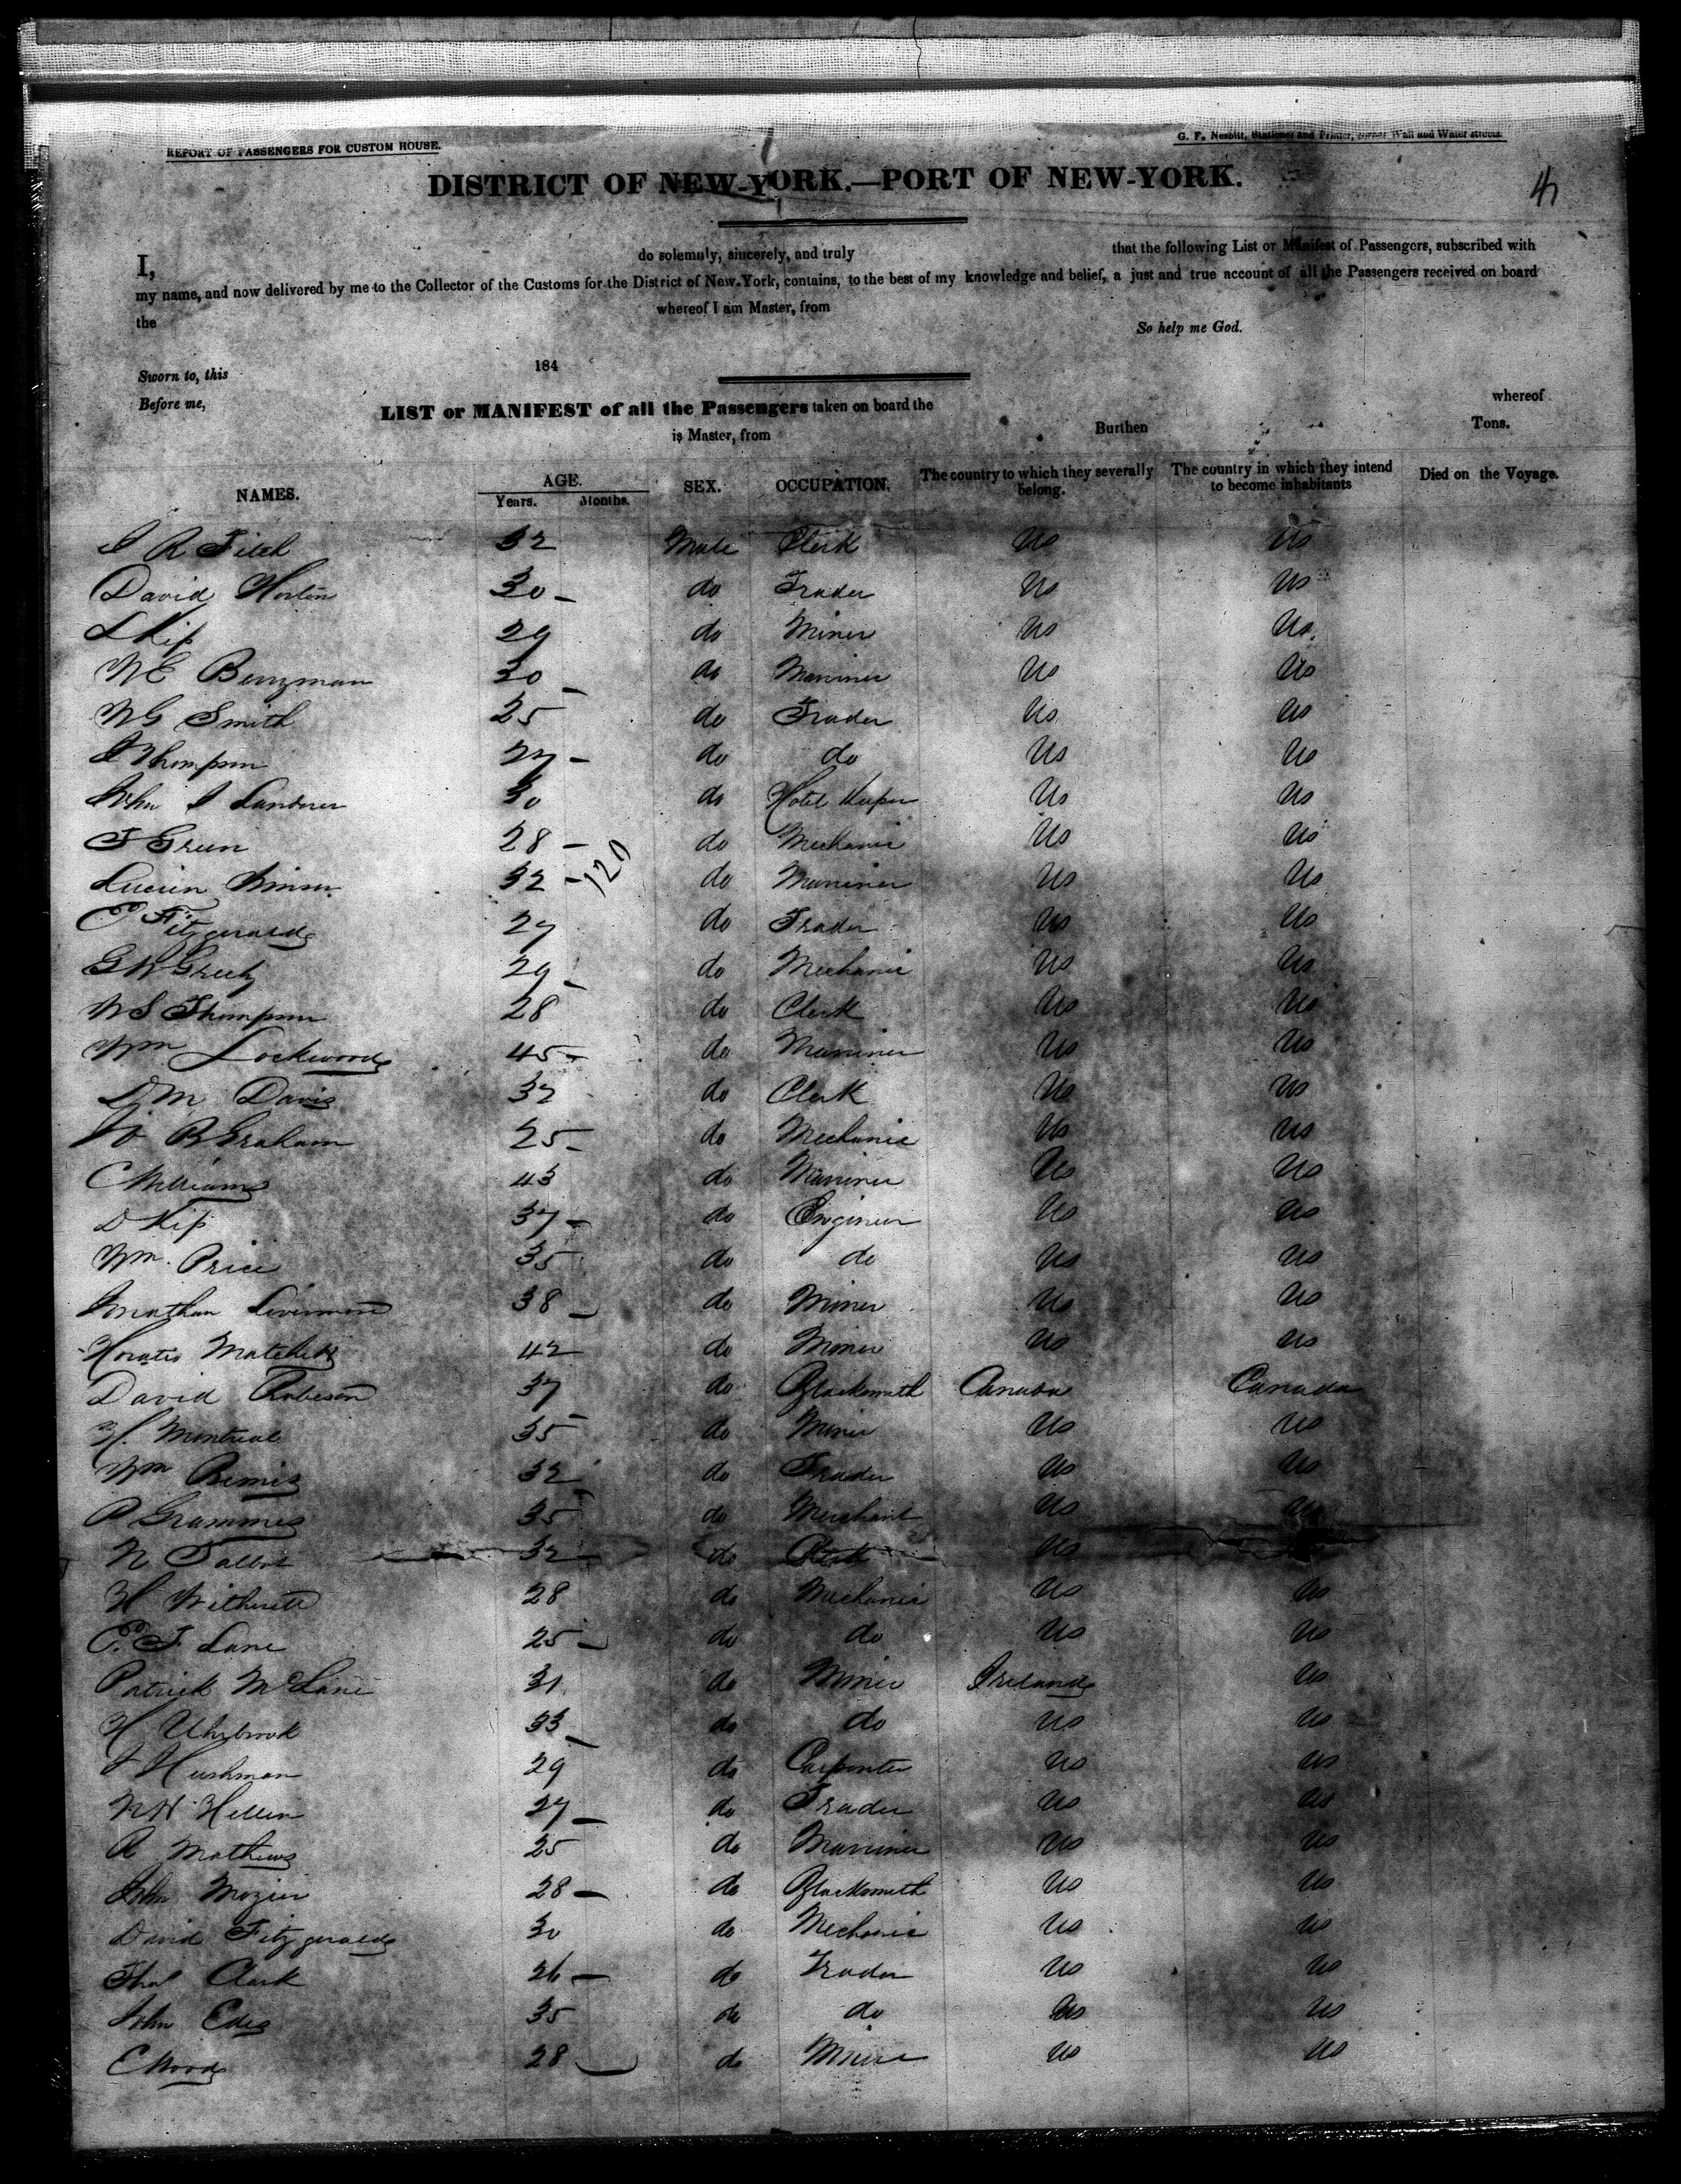 REPORT OF PASSENGERS FOR CUSTOM HOUSE.
G. F. Nesbitt, Stationer and Printer, corner Wall and Water streets.
DISTRICT OF NEW-YORK.—PORT OF NEW-YORK.
I, do solemnly, sincerely, and truly that the following List or Manifest of Passengers, subscribed with
my name, and now delivered by me to the Collector of the Customs for the District of New-York, contains, to the best of my knowledge and belief, a just and true account of all the Passengers received on board
the whereof I am Master, from
So help me God.
Sworn to, this 184
Before me,
LIST or MANIFEST of all the Passengers taken on board the whereof
is Master, from Burthen Tons.
NAMES. AGE. Years. Months. SEX. OCCUPATION. The country to which they severally belong. The country in which they intend to become inhabitants Died on the Voyage.
R Fitch 32 Male Clerk US US
David Horton 30 - do Trader US US
L Kip 29 do Miner US US
W E 30 - do Mariner US US
W G Smith 25 do Trader US US
Thompson 27 - do do US US
John 30 do Hotel Keeper US US
F Green 28 - do Mechanic US US
Lucien 32 - 120 do Mariner US US
Fitzgerald 27 do Trader US US
G W 29 - do Mechanic US US
W S Thompson 28 do Clerk US US
Wm Lockwood 45 - do Mariner US US
D M Davis 32 do Clerk US US
B Graham 25 - do Mechanic US US
C Williams 43 do Mariner US US
D Kip 37 - do Engineer US US
Wm Price 35 do do US US
Jonathan 38 - do Miner US US
Horatio 42 do Miner US US
David Robeson 37 - do Blacksmith Canada Canada
H. Montreal 35 do Miner US US
Wm Bemis 32 - do Trader US US
35 do Merchant US US
N Talbot 32 - do Clerk US
H 28 do Mechanic US US
F Lane 25 - do do US US
Patrick McLane 31 do Miner Ireland US
H 33 - do do US US
29 do Carpenter US US
27 - do Trader US US
A Mathews 25 do Mariner US US
John Mozier 28 - do Blacksmith US US
David Fitzgerald 30 do Mechanic US US
Thos Clark 26 - do Trader US US
John Edes 35 do do US US
C Wood 28 - do US US